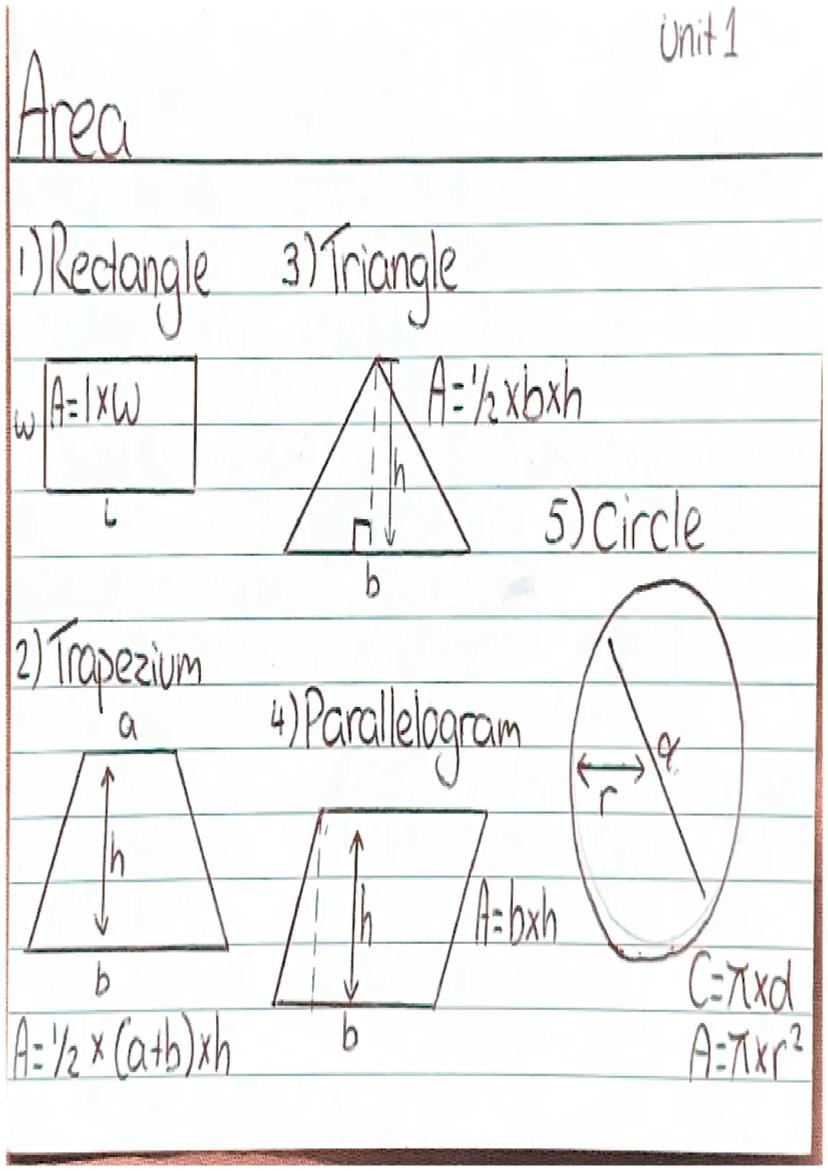 Unit 1
Area
1) Rectangle
w
A=l×w
l
3) Triangle
A=½×b×h
h
b
2) Trapezium
a
h
b
A=½×(a+b)×h
4) Parallelogram
h
A=b×h
b
5) Circle
d
r
C=π×d
A=π×r²